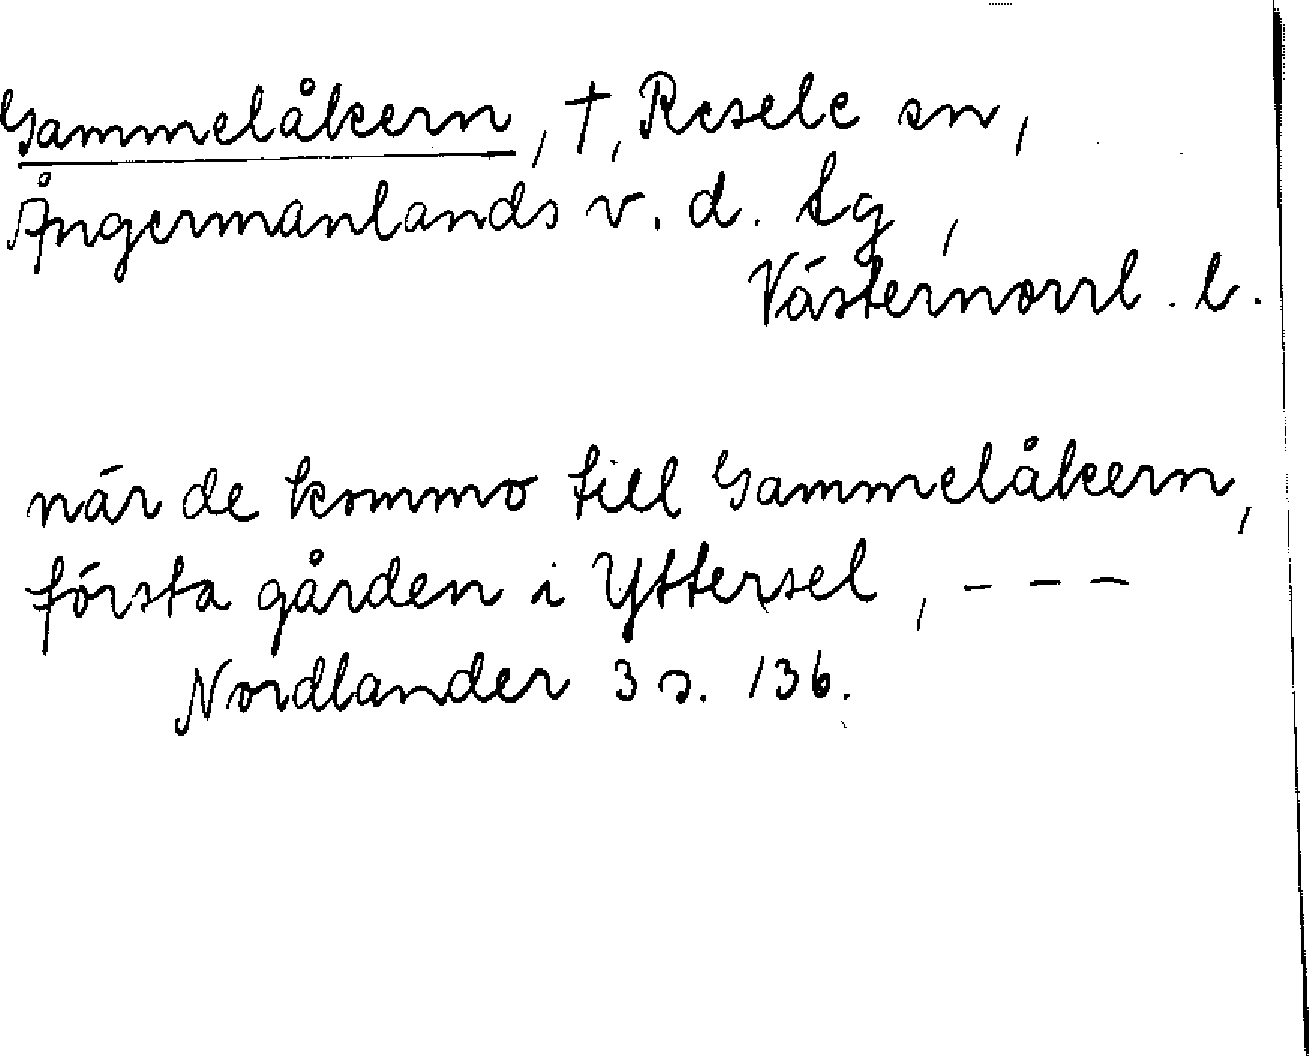 Gammelåkern, †, Resele sn,
Ångermanlands v. d. tg,
Västernorrl. l.
när de kommo till Gammelåkern,
första gården i Yttersel, - - -
Nordlander 3 s. 136.